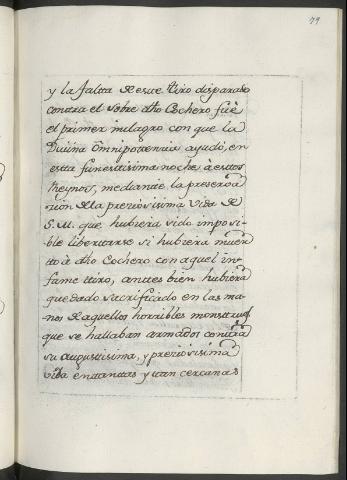 79
y la faltta de estte ttiro disparado
contra el sobre dho Cochero, fuè
el primer milagro con que la
Divina Omnipottencia ayudó, en
estta funesttisima noche, à esttos
Reynos, mediantte la preserva
cion de la preziosisima vida de
S. M. que hubiera sido imposi-
ble liberttarse si hubiera muer
tto à dho Cochero con aquel in-
fame ttiro, anttes bien hubiera
quedado sacrificado en las ma-
nos de aquellos horribles monsttruos
que se hallaban armados conttra
su augusttisima, y preziosisima
vida en ttanttas y ttan cercanas